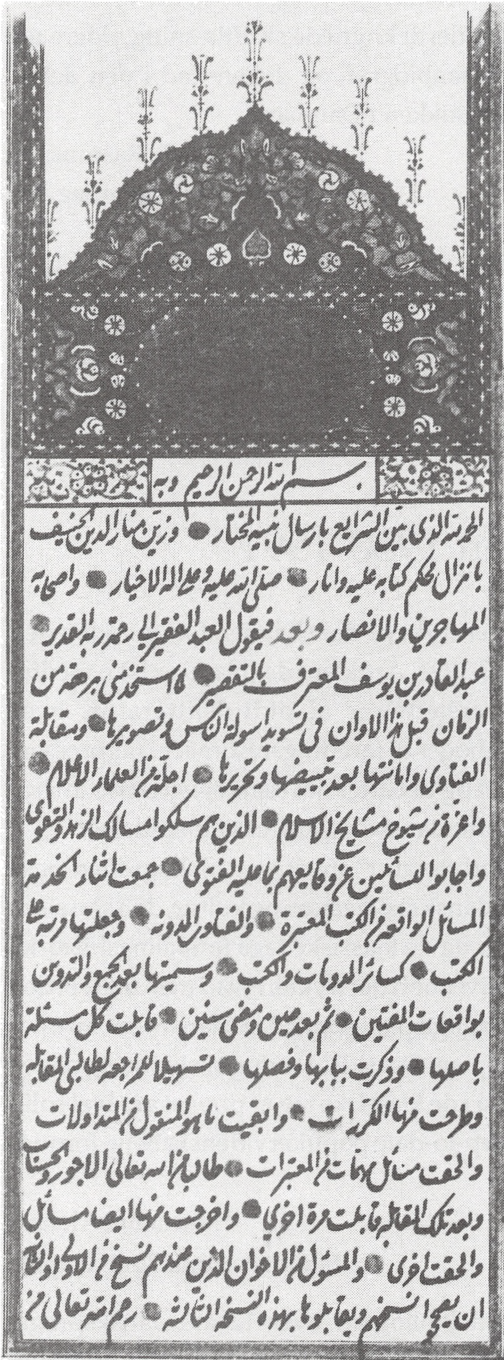 بسم الله الرحمن الرحيم وبه
الحمد لله الذي بين الشرايع بارسال نبيه المختار وزين منار الدين الحنيف
بانزال محكم كتابه عليه وانار صلى الله عليه وعلى اله الاخيار واصحابه
المهاجرين والانصار وبعد فيقول العبد الفقير الى رحمة ربه القدير
عبد القادر بن يوسف المعترف بالتقصير لما استخدمنى برهة من
الزمان قبل هذا الاوان فى تسويد اسولة الناس وتصويرها ومقابلة
الفتاوى وامانتها بعد تبييضها وتحريرها اجلة من العلماء الاعلام
واعزة من شيوخ مشايخ الاسلام الذين هم سلكوا مسالك الزهد والتقوى
واجابوا للسائلين عن وقايعهم بما عليه الفتوى جمعت اثناء الخدمة
المسائل الواقعة من الكتب المعتبرة والفتاوى المدونه وجعلتها مرتبة على
الكتب كسائر المدونات والكتب وسميتها بعد الجمع والتدوين
بواقعات المفتين ثم بعد حين ومضى سنين قابلت كل مسئلة
باصلها وذكرت ببابها وفصلها تسهيلا للمراجعه لطالبى المقابله
وطرحت منها المكررات وابقيت ما هو المنقول من المتداولات
والحقت مسائل مهمات من المعتبرات طالبا من الله تعالى الاجور والحسنات
وبعد تلك المقابلة قابلت مرة اخرى واخرجت منها ايضا مسائل
والحقت اخرى والمسئول من الاخوان الذين عندهم نسخ من الاولى او الثانية
ان يصححوا نسخهم ويقابلوها بهذه النسخة الثالثة رحم الله تعالى من